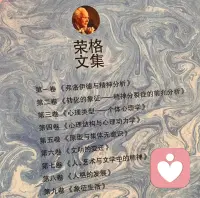 荣格
文集
第一卷 《弗洛伊德与精神分析》
第二卷 《转化的象征——精神分裂症的前兆分析》
第三卷 《心理类型——个体心理学》
第四卷 《心理结构与心理动力学》
第五卷 《原型与集体无意识》
第六卷 《文明的变迁》
第七卷 《人、艺术与文学中的精神》
第八卷 《人格的发展》
第九卷 《象征生活》